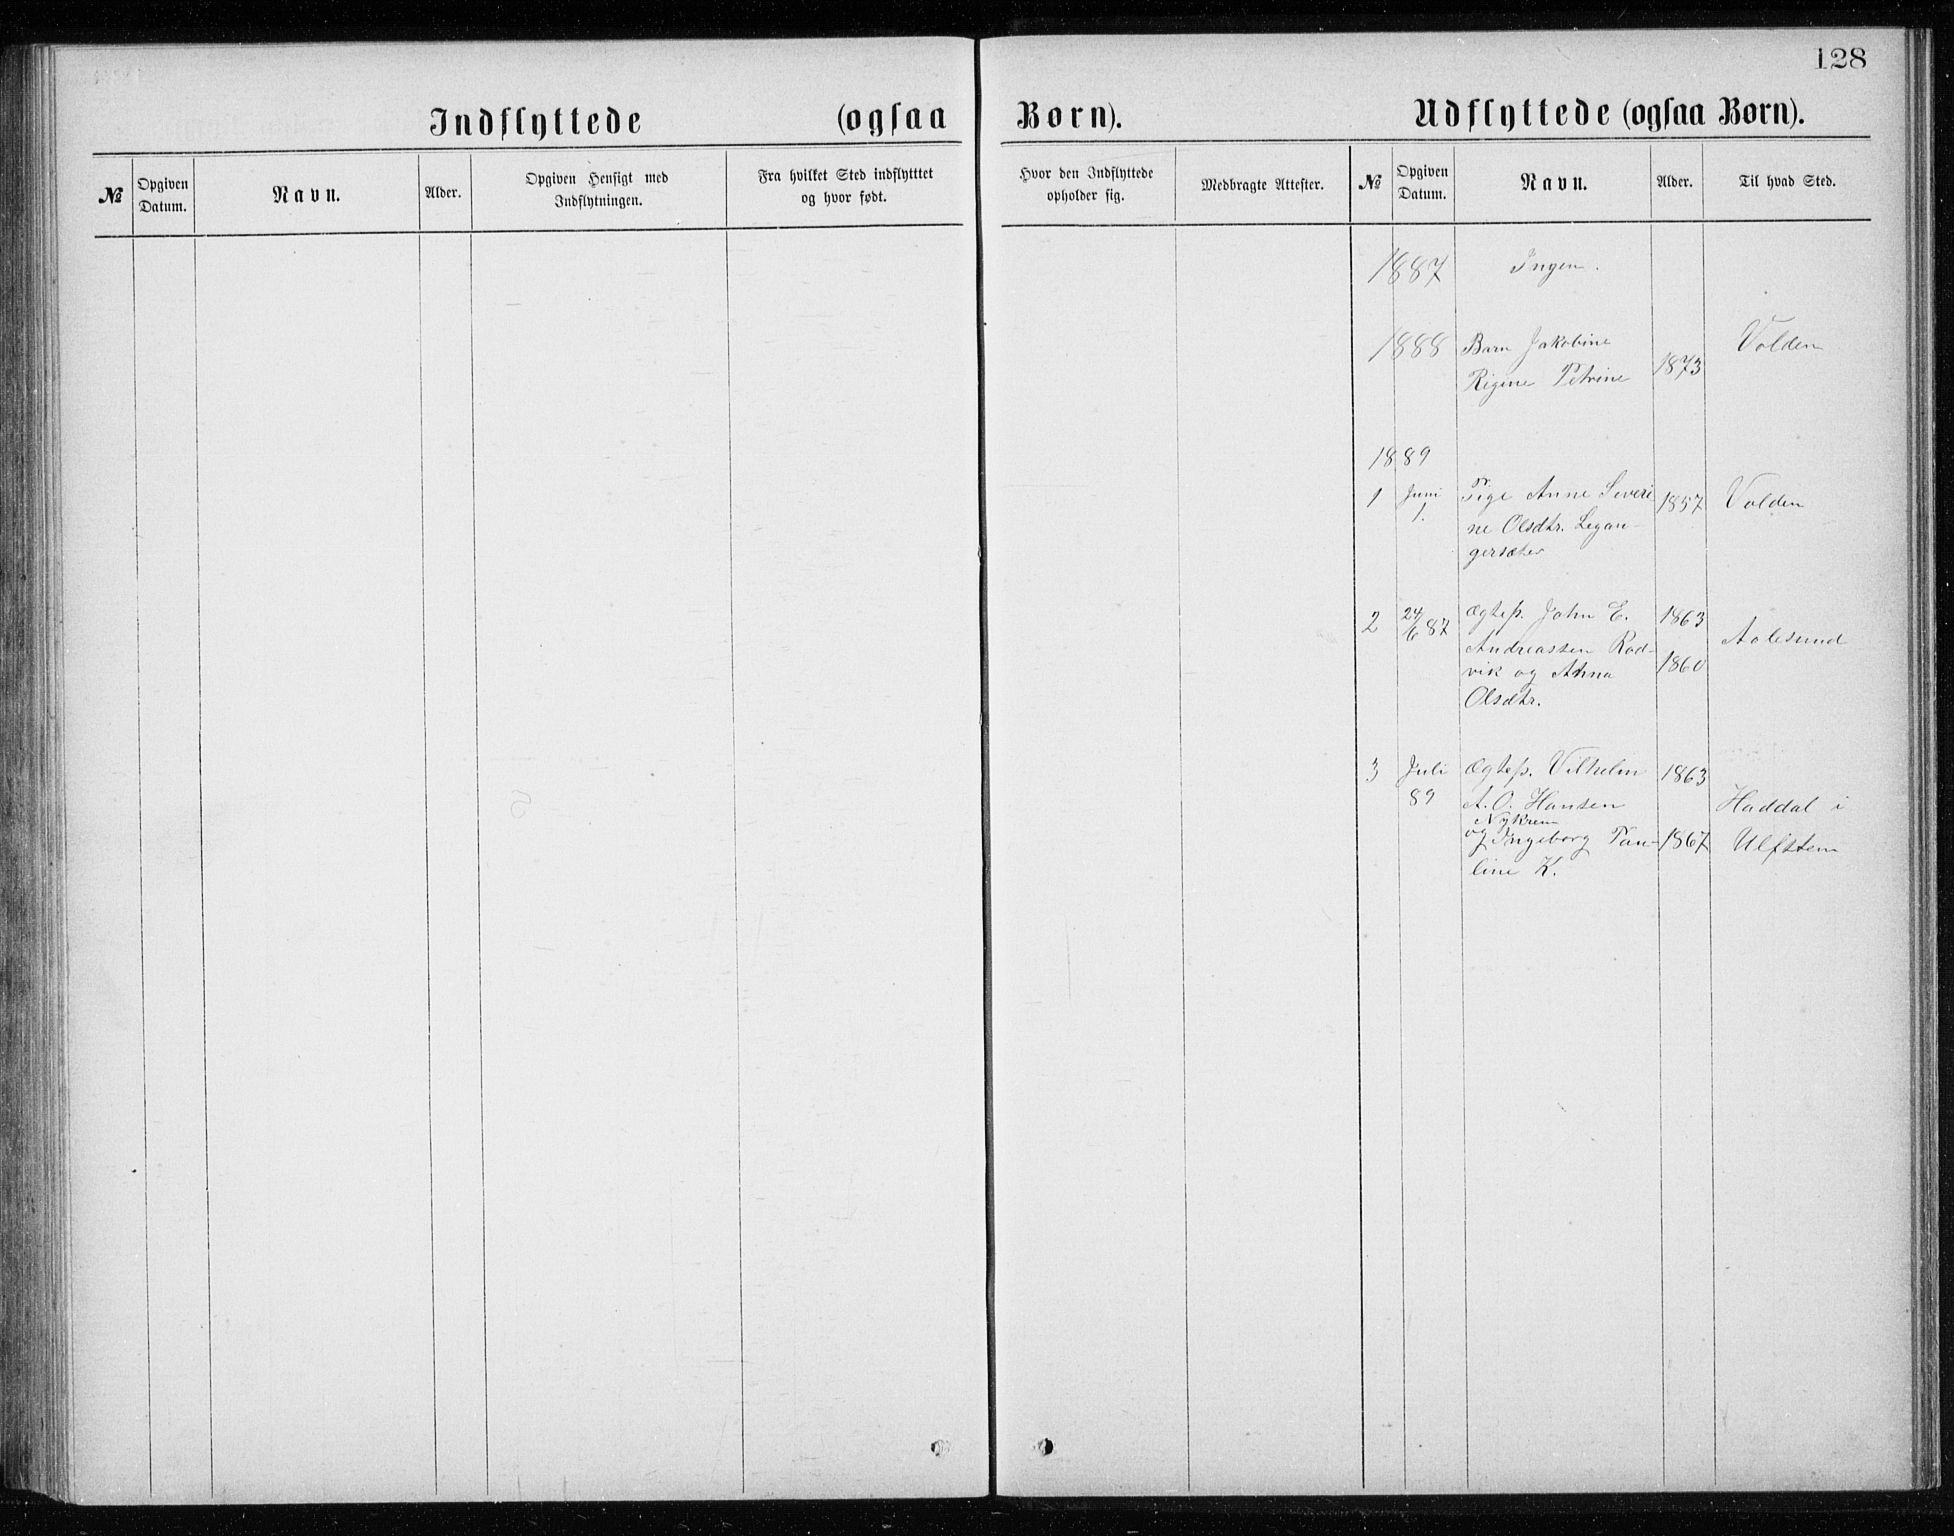 128
Indflyttede (ogsaa Børn).
Udflyttede (ogsaa Børn).
№
Opgiven Datum.
Navn.
Alder.
Opgiven Hensigt med Indflytningen.
Fra hvilket Sted indflytttet og hvor født.
Hvor den Indflyttede opholder sig.
Medbragte Attester.
№
Opgiven Datum.
Navn.
Alder.
Til hvad Sted.
1887 Ingen.
1888 Barn Jakobine Volden
Rigine Petrine 1873
1889
1 Juni Pige Anne Severi 1857 Volden
1. ne Olsdtr. Legan-
gersæter
2 24/6 87 Ægtep. John E. 1863 Aalesund
Andreassen Rod-
vik og Anna 1860
Olsdtr.
3 Juli Ægtep. Vilhelm 1863
89 A. O. Hansen Haddal i
Nykrem
og Ingeborg Pau- 1867 Ulfsten
line K.